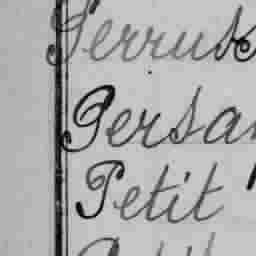 Perrus
Persa
Petit